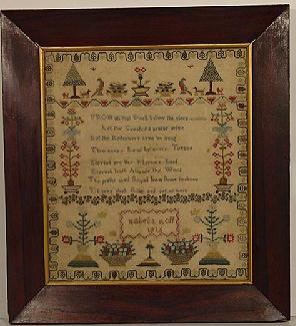 FROM all that dwell below the skies
Let the Creators praise arise
Let the Redeemers name be sung
Thro every Land by every Tongue
Eternal are thy Mercies Lord
Eternal truth Attends thy Word
Thy praise shall Sound from Shore to shore
Till Suns shall Rise and set no more